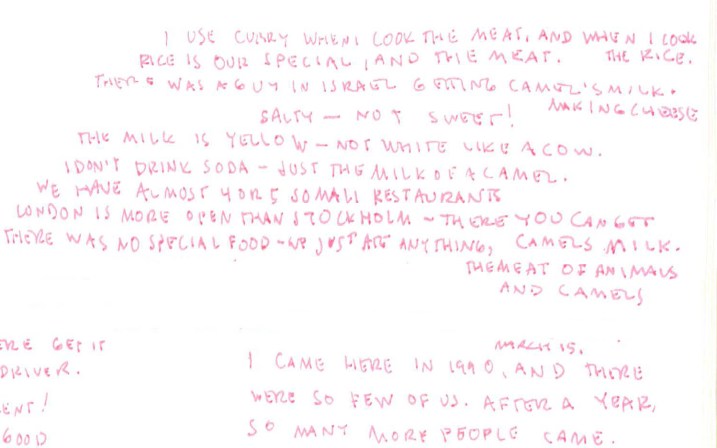 I USE CURRY WHEN I COOK THE MEAT, AND WHEN I COOK
RICE IS OUR SPECIAL, AND THE MEAT. THE RICE.
THERE WAS A GUY IN ISRAEL GETTING CAMEL'S MILK.
MAKING CHEESE
SALTY - NOT SWEET!
THE MILK IS YELLOW - NOT WHITE LIKE A COW.
I DON'T DRINK SODA - JUST THE MILK OF A CAMEL.
WE HAVE ALMOST 4 OR 5 SOMALI RESTAURANTS
LONDON IS MORE OPEN THAN STOCKHOLM - THERE YOU CAN GET
THERE WAS NO SPECIAL FOOD - WE JUST ATE ANYTHING, CAMELS MILK.
THE MEAT OF ANIMALS
AND CAMELS
ERE GET IT
DRIVER.
ENT!
GOOD
MARCH 15.
I CAME HERE IN 1990, AND THERE
WERE SO FEW OF US. AFTER A YEAR,
SO MANY MORE PEOPLE CAME.